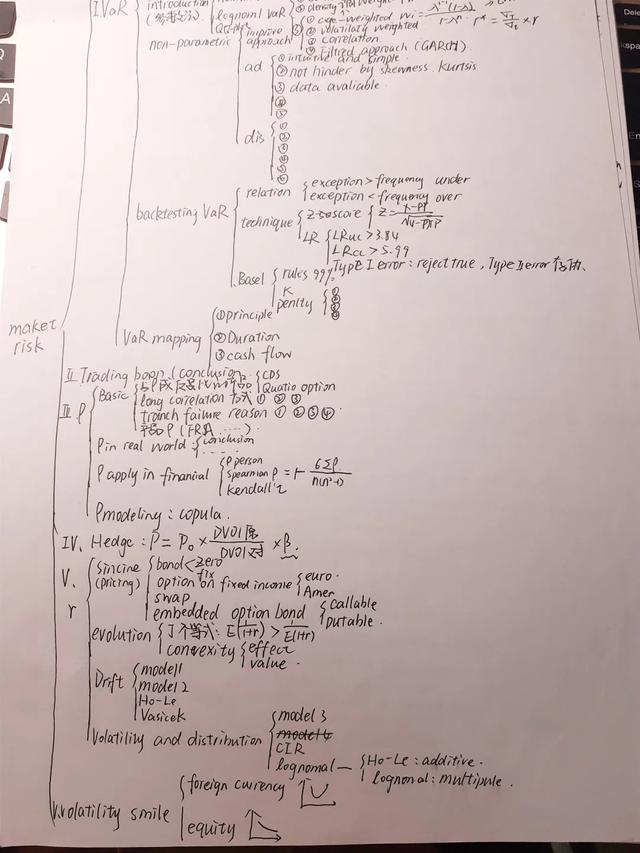 I VaR
introduction
lognoml VaR
non-parametric
improve approach
① age-weighted wi = λ^i-1(1-λ) / 1-λ^n
② volatility weighted r* = × r
③ correlation.
④ Filtred approach (GARCH)
ad
① intuitive and simple
② not hinder by skewness. kurtsis
③ data avaliable.
④
⑤
dis
①
②
③
④
⑤
⑥
backtesting VaR
relation
exception > frequency under
exception < frequency over
technique
z-score
z = x-pT / √(1-p)Tp
LR
LRuc > 3.84
LRcc > 5.99
Basel
rules 99%
Type I error: reject true, Type II error 存功、
K
penlty
①
②
③
④
maket risk
VaR mapping
① principle
② Duration
③ cash flow
II Trading boon (conclusion
III ρ
Basic
CDS
Quatio option
long correlation 方式 ① ② ③
tranch failure reason ① ② ③ ④
产品 ρ (FRM ......)
ρ in real world:
conclusion
......
ρ apply in finanial
ρ person
spearman ρ = 1- 6Σρ / n(n²-1)
kendall'τ
ρ modeling: copula.
IV. Hedge: P = P₀ × DV01原 / DV01对 × β.
V. r
Sincine (pricing)
bond < zero
fix
option on fixed income
euro.
Amer
swap
embedded option bond
callable
putable.
evolution
J不等式: E(1/1+r) > 1/E(1+r)
convexity
effect
value.
Drift
model 1
model 2
Ho-Le
Vasicek
Volatility and distribution
model 3
model 4
CIR
lognomal
Ho-Le: additive.
lognomal: multipule.
V. volatility smile
foreign currency
equity